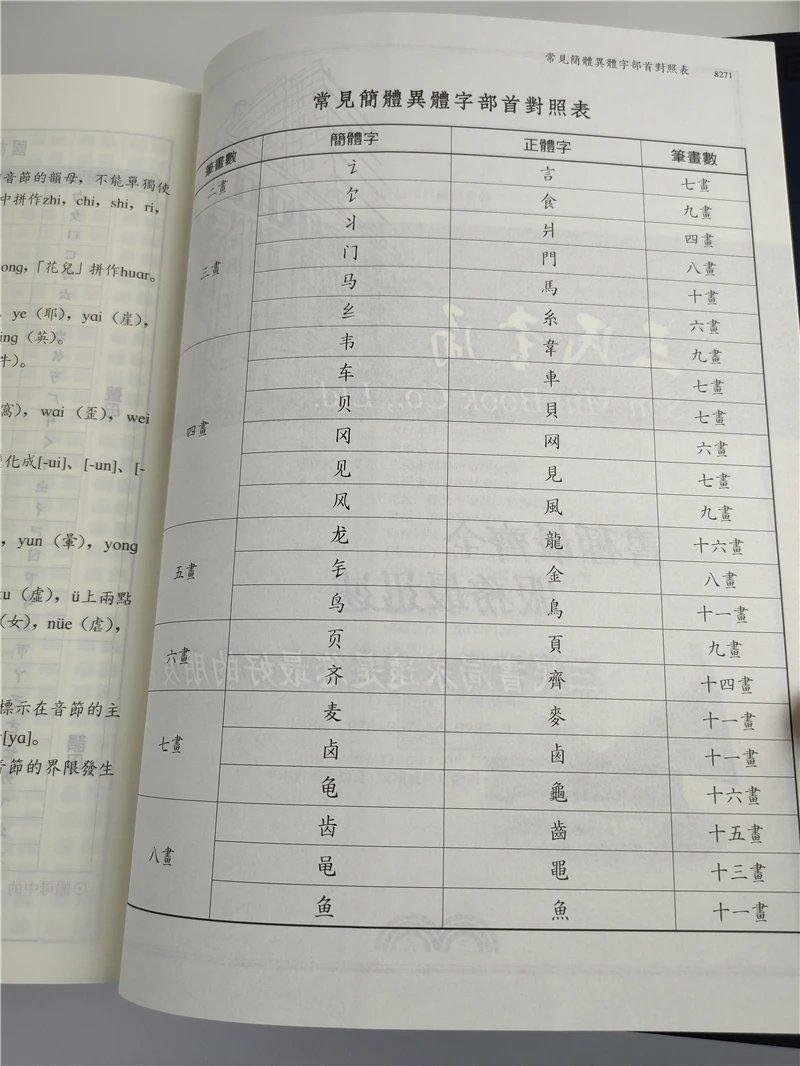 音節的韻母，不能單獨使
中拼作zhi，chi，shi，ri，
ong，「花兒」拼作huɑr。
，ye（耶），yɑi（崖），
ing（英）。
牛）。
窩），wɑi（歪），wei
化成[-ui]、[-un]、[-
，yun（暈），yong
u（虛），ü上兩點
（女），nüe（虐），
標示在音節的主
[yɑ]。
音節的界限發生
常見簡體異體字部首對照表 8271
常見簡體異體字部首對照表
筆畫數 簡體字 正體字 筆畫數
二畫 讠 言 七畫
三畫 饣 食 九畫
丬 爿 四畫
门 門 八畫
马 馬 十畫
纟 糸 六畫
四畫 韦 韋 九畫
车 車 七畫
贝 貝 七畫
冈 网 六畫
见 見 七畫
风 風 九畫
五畫 龙 龍 十六畫
钅 金 八畫
鸟 鳥 十一畫
六畫 页 頁 九畫
齐 齊 十四畫
七畫 麦 麥 十一畫
卤 鹵 十一畫
龟 龜 十六畫
八畫 齿 齒 十五畫
黾 黽 十三畫
鱼 魚 十一畫